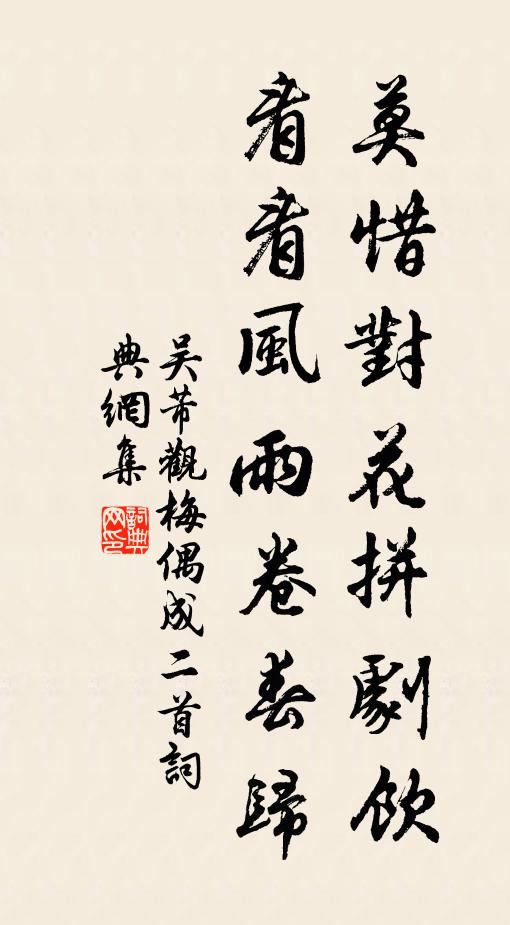 莫惜對花拼劇飲
看看風雨卷春歸
吴芾觀梅偶成二首詞
典網集
詞典
网印